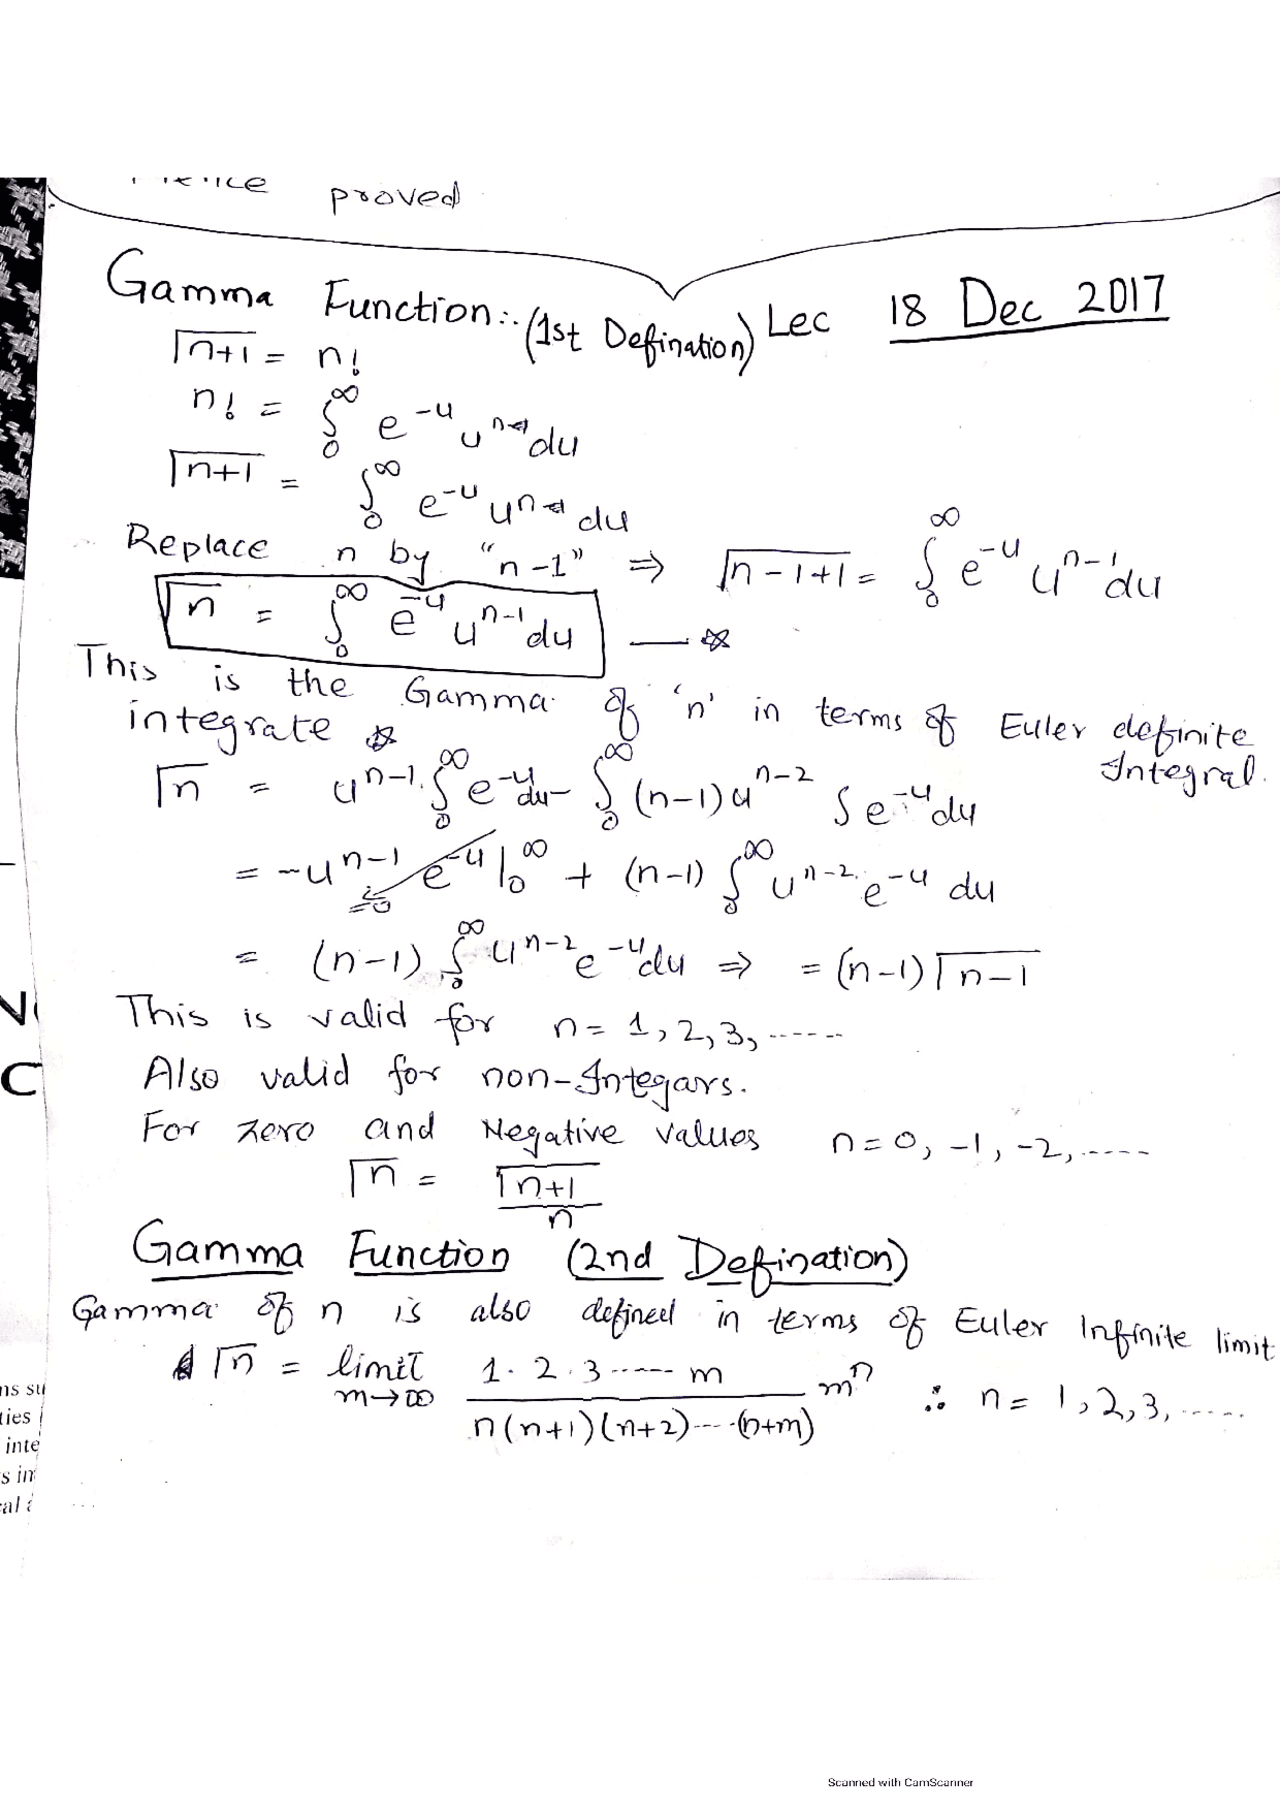 proved
Gamma Function:. (1st Defination) Lec 18 Dec 2017
Γn+1 = n!
n! = ∫₀^∞ e^-u u^n du
Γn+1 = ∫₀^∞ e^-u u^n du
Replace n by "n-1" ⇒ Γn-1+1 = ∫₀^∞ e^-u u^n-1 du
Γn = ∫₀^∞ e^-u u^n-1 du —☆
This is the Gamma of 'n' in terms of Euler definite Integral.
integrate ☆
Γn = u^n-1 . ∫₀^∞ e^-u du - ∫₀^∞ (n-1) u^n-2 ∫ e^-u du
= -u^n-1 e^-u |₀^∞ + (n-1) ∫₀^∞ u^n-2 . e^-u du
=0
= (n-1) ∫₀^∞ u^n-2 e^-u du ⇒ = (n-1) Γn-1
This is valid for n = 1, 2, 3, ......
Also valid for non-Integars.
For zero and Negative values n = 0, -1, -2, .....
Γn = Γn+1 / n
Gamma Function (2nd Defination)
Gamma of n is also defined in terms of Euler Infinite limit
Γn = limit m→∞ 1. 2. 3 ...... m / n(n+1)(n+2)....(n+m) m^n ∴ n = 1, 2, 3, .....
N
C
ns su
ties
inte
s in
cal a
Scanned with CamScanner